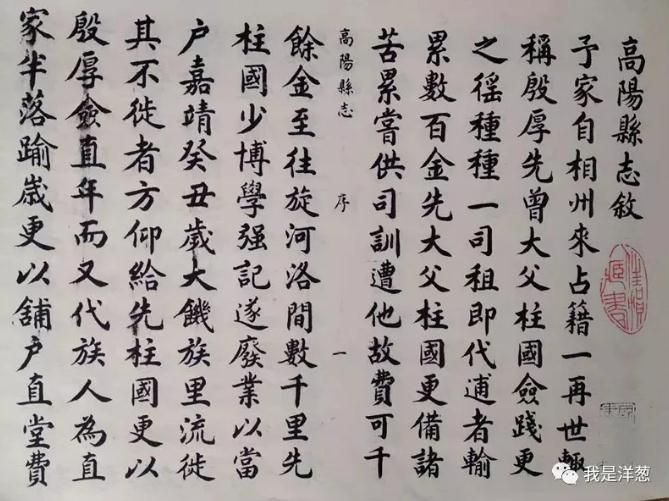 高陽縣志敘
予家自相州來占籍一再世輙
稱殷厚先曾大父柱國僉踐更
之徭種種一司租即代逋者輸
累數百金先大父柱國更備諸
苦累嘗供司訓遭他故費可千
高陽縣志 序 一
餘金至往旋河洛間數千里先
柱國少博學强記遂廢業以當
户嘉靖癸丑歲大饑族里流徙
其不徙者方仰給先柱國更以
殷厚僉直年而又代族人為直
家半落踰歲更以舖户直堂費
我是洋葱